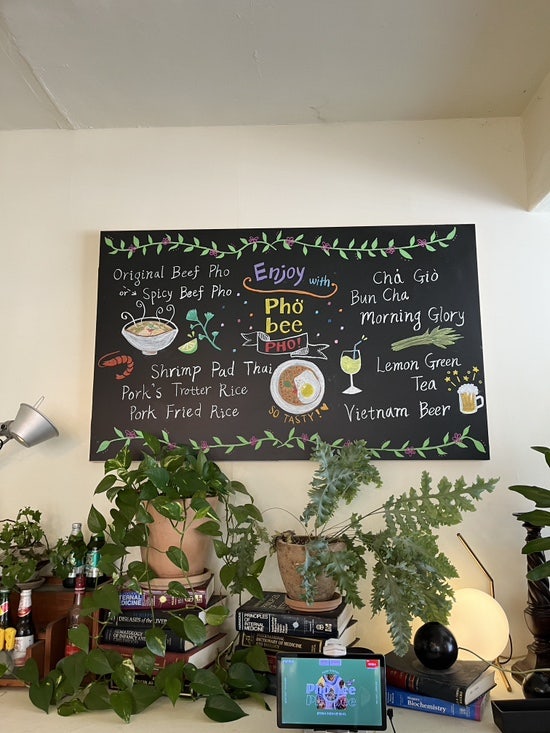 Original Beef Pho
or's Spicy Beef Pho.
Shrimp Pad Thai
Pork's Trotter Rice
Pork Fried Rice
Enjoy with
Phở
bee
PHO!
SO TASTY!
Chả Giò
Bun Cha
Morning Glory
Lemon Green
Tea
Vietnam Beer
INTERNAL
MEDICINE
DISEASES OF THE LIVER
HEMATOLOGY
OF INFANCY AND
PRINCIPLES OF
INTERNAL MEDICINE
Biochemistry
Pho bee